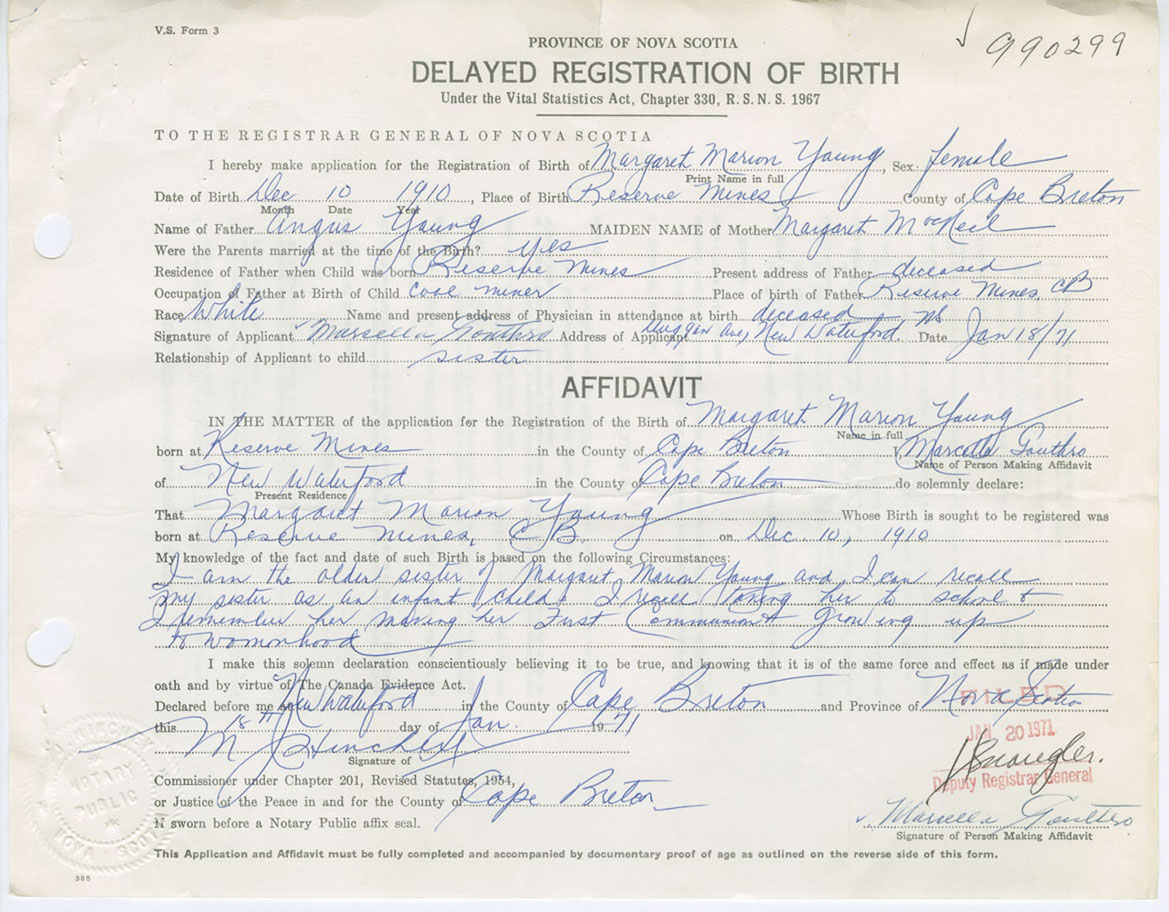 V.S. Form 3
990299
PROVINCE OF NOVA SCOTIA
DELAYED REGISTRATION OF BIRTH
Under the Vital Statistics Act, Chapter 330, R.S.N.S. 1967
TO THE REGISTRAR GENERAL OF NOVA SCOTIA
I hereby make application for the Registration of Birth of Margaret Marion Young, Sex: female
Print Name in full
Date of Birth Dec 10 1910, Place of Birth Reserve Mines County of Cape Breton
Month Date Year
Name of Father Angus Young MAIDEN NAME of Mother Margaret MacNeil
Were the Parents married at the time of the Birth? yes
Residence of Father when Child was born Reserve Mines Present address of Father deceased
Occupation of Father at Birth of Child Coal miner Place of birth of Father Reserve Mines, CB
Race White Name and present address of Physician in attendance at birth deceased
Signature of Applicant Marcella Gouthro Address of Applicant Duggan Ave, New Waterford, NS Date Jan 18/71
Relationship of Applicant to child sister
AFFIDAVIT
IN THE MATTER of the application for the Registration of the Birth of Margaret Marion Young
Name in full
born at Reserve Mines in the County of Cape Breton I Marcella Gouthro
Name of Person Making Affidavit
of New Waterford in the County of Cape Breton do solemnly declare:
Present Residence
That Margaret Marion Young Whose Birth is sought to be registered was
born at Reserve Mines, C.B. on Dec. 10, 1910
My knowledge of the fact and date of such Birth is based on the following Circumstances:
I am the older sister of Margaret Marion Young and I can recall
my sister as an infant child. I recall taking her to school &
I remember her making her First Communion & growing up
to womonhood
I make this solemn declaration conscientiously believing it to be true, and knowing that it is of the same force and effect as if made under
oath and by virtue of The Canada Evidence Act.
Declared before me at New Waterford in the County of Cape Breton and Province of Nova Scotia
FILED
this 18th day of Jan. 1971
JAN 20 1971
M J Hinchey
Signature of
Deputy Registrar General
Commissioner under Chapter 201, Revised Statutes, 1954,
or Justice of the Peace in and for the County of Cape Breton
Marcella Gouthro
If sworn before a Notary Public affix seal.
Signature of Person Making Affidavit
NOTARY PUBLIC
NOVA SCOTIA
This Application and Affidavit must be fully completed and accompanied by documentary proof of age as outlined on the reverse side of this form.
385